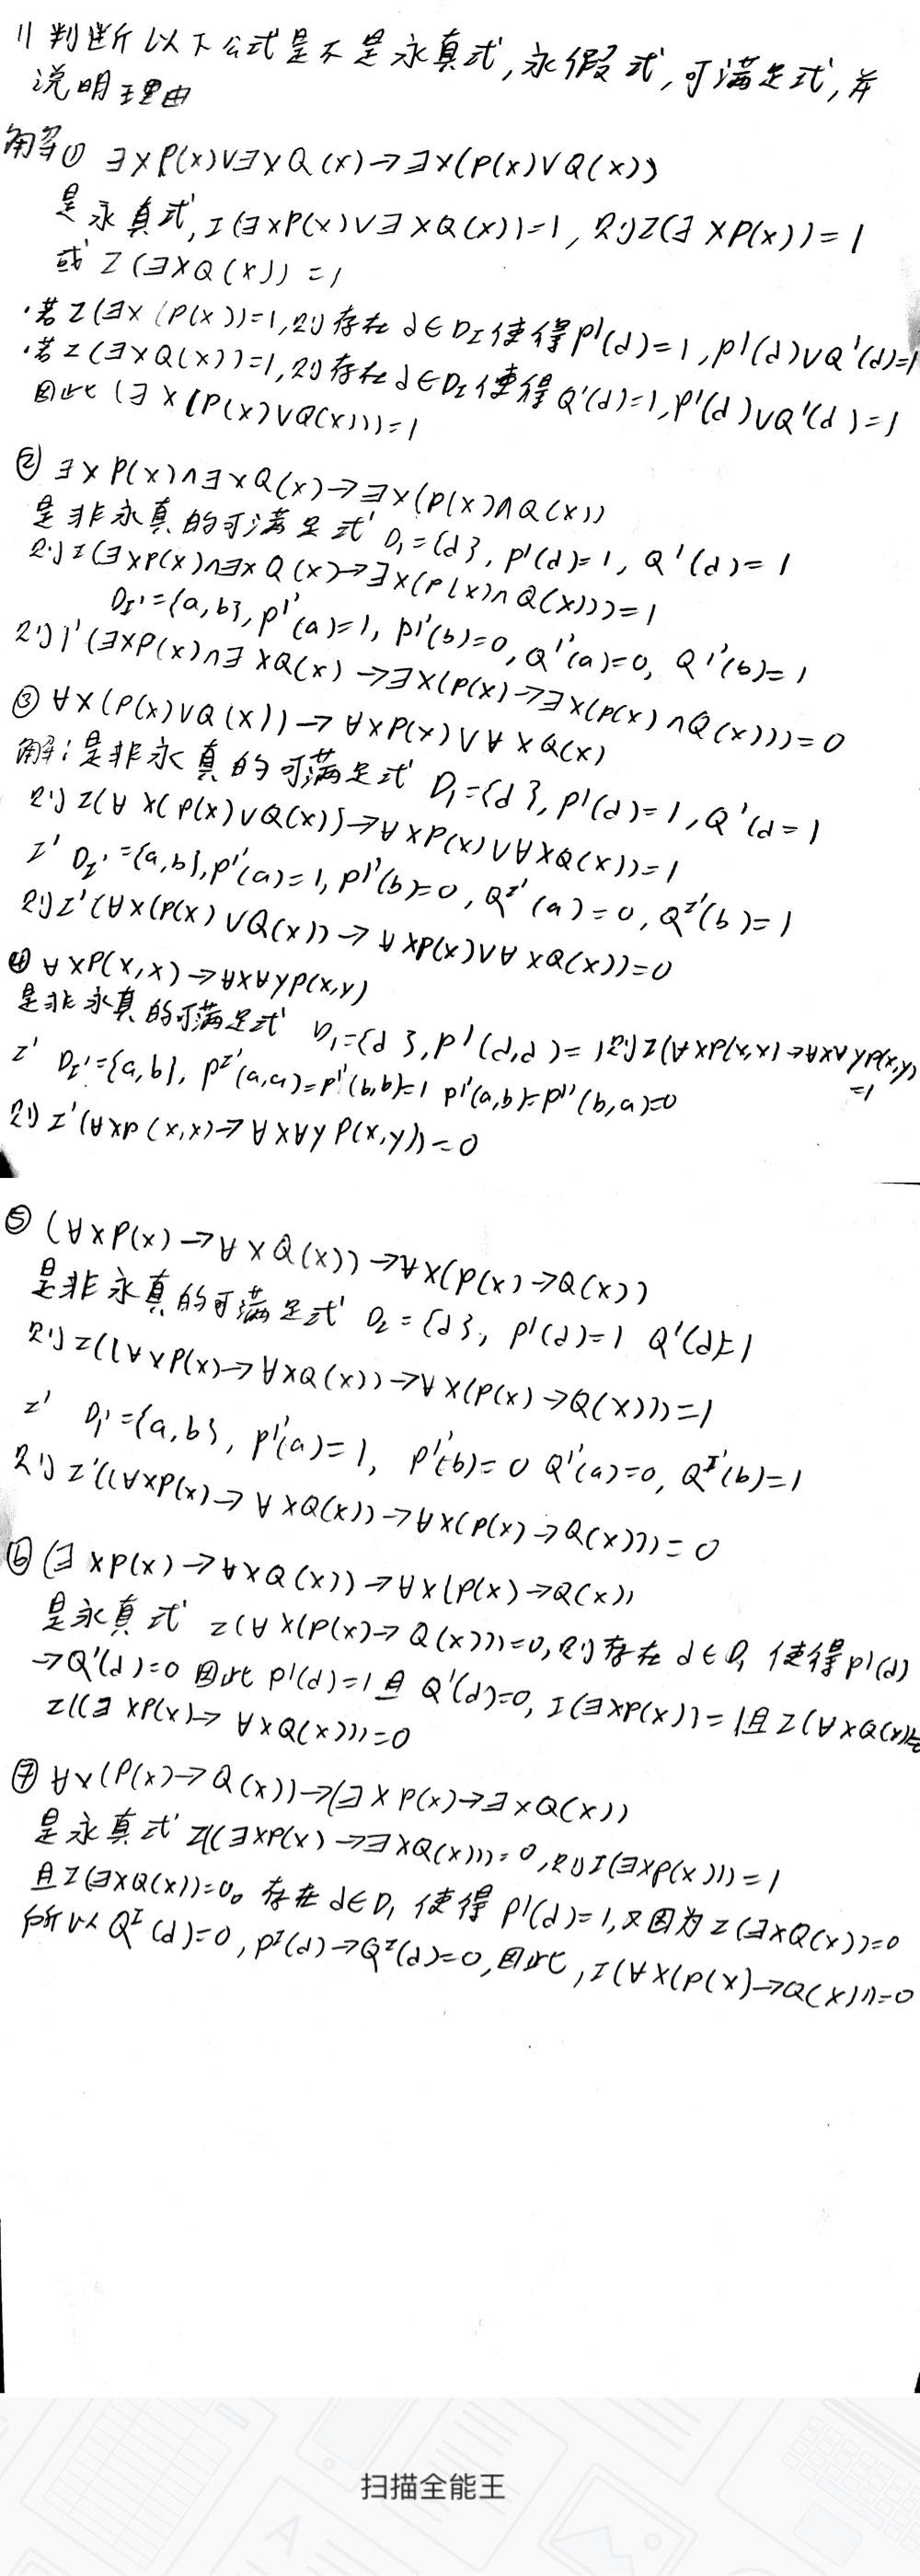 11 判断以下公式是不是永真式,永假式,可满足式,并
说明理由
解① ∃xP(x)∨∃xQ(x)→∃x(P(x)∨Q(x))
是永真式,I(∃xP(x)∨∃xQ(x))=1,则I(∃xP(x))=1
或I(∃xQ(x))=1
·若I(∃x(P(x))=1,则存在d∈D_I使得P'(d)=1,P'(d)∨Q'(d)=1
·若I(∃xQ(x))=1,则存在d∈D_I使得Q'(d)=1,P'(d)∨Q'(d)=1
因此(∃x(P(x)∨Q(x)))=1
② ∃xP(x)∧∃xQ(x)→∃x(P(x)∧Q(x))
是非永真的可满足式 D₁={d},P'(d)=1,Q'(d)=1
则I(∃xP(x)∧∃xQ(x)→∃x(P(x)∧Q(x)))=1
D_I'={a,b},P''(a)=1,P''(b)=0,Q''(a)=0,Q''(b)=1
则I'(∃xP(x)∧∃xQ(x)→∃x(P(x)→∃x(P(x)∧Q(x)))=0
③ ∀x(P(x)∨Q(x))→∀xP(x)∨∀xQ(x)
解:是非永真的可满足式 D₁={d},P'(d)=1,Q'(d=1
则I(∀x(P(x)∨Q(x))→∀xP(x)∨∀xQ(x))=1
I' D_I'={a,b},P''(a)=1,P''(b)=0,Q^I'(a)=0,Q^I'(b)=1
则I'(∀x(P(x)∨Q(x))→∀xP(x)∨∀xQ(x))=0
④ ∀xP(x,x)→∀x∀yP(x,y)
是非永真的可满足式 D₁={d},P'(d,d)=1则I(∀xP(x,x)→∀x∀yP(x,y)
=1
I' D_I'={a,b},P^I'(a,a)=P''(b,b)=1 P''(a,b)=P''(b,a)=0
则I'(∀xP(x,x)→∀x∀yP(x,y))=0
⑤ (∀xP(x)→∀xQ(x))→∀x(P(x)→Q(x))
是非永真的可满足式 D_I={d},P'(d)=1 Q'(d)=1
则I((∀xP(x)→∀xQ(x))→∀x(P(x)→Q(x)))=1
I' D_I'={a,b},P''(a)=1,P''(b)=0 Q''(a)=0,Q^I'(b)=1
则I'((∀xP(x)→∀xQ(x))→∀x(P(x)→Q(x)))=0
⑥ (∃xP(x)→∀xQ(x))→∀x(P(x)→Q(x))
是永真式 I(∀x(P(x)→Q(x)))=0,则存在d∈D₁使得P'(d)
→Q'(d)=0因此P'(d)=1且Q'(d)=0,I(∃xP(x))=1且I(∀xQ(x))=0
I((∃xP(x)→∀xQ(x)))=0
⑦ ∀x(P(x)→Q(x))→(∃xP(x)→∃xQ(x))
是永真式 I((∃xP(x)→∃xQ(x)))=0,则I(∃xP(x)))=1
且I(∃xQ(x))=0。存在d∈D₁使得P'(d)=1,又因为I(∃xQ(x))=0
所以Q^I(d)=0,P^I(d)→Q^I(d)=0,因此,I(∀x(P(x)→Q(x)))=0
扫描全能王